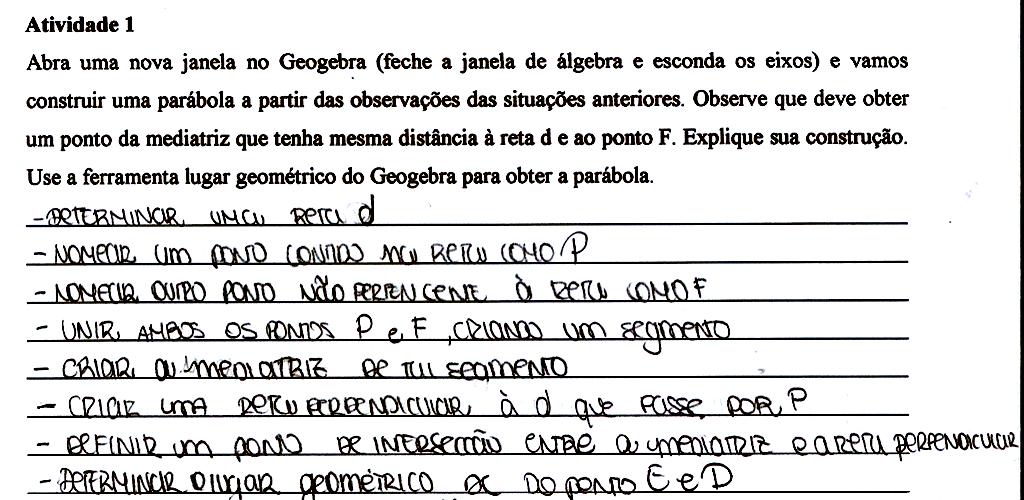 Atividade 1
Abra uma nova janela no Geogebra (feche a janela de álgebra e esconda os eixos) e vamos
construir uma parábola a partir das observações das situações anteriores. Observe que deve obter
um ponto da mediatriz que tenha mesma distância à reta d e ao ponto F. Explique sua construção.
Use a ferramenta lugar geométrico do Geogebra para obter a parábola.
- DETERMINAR UMA RETA d
- NOMEAR UM PONTO CONTIDO NA RETA COMO P
- NOMEAR OUTRO PONTO NÃO PERTENCENTE À RETA COMO F
- UNIR AMBOS OS PONTOS P e F, CRIANDO UM SEGMENTO
- CRIAR A MEDIATRIZ DE TAL SEGMENTO
- CRIAR UMA RETA PERPENDICULAR À d QUE PASSE POR P
- DEFINIR UM PONTO DE INTERSECÇÃO ENTRE A MEDIATRIZ E A RETA PERPENDICULAR
- DETERMINAR O LUGAR GEOMÉTRICO DO PONTO E e D